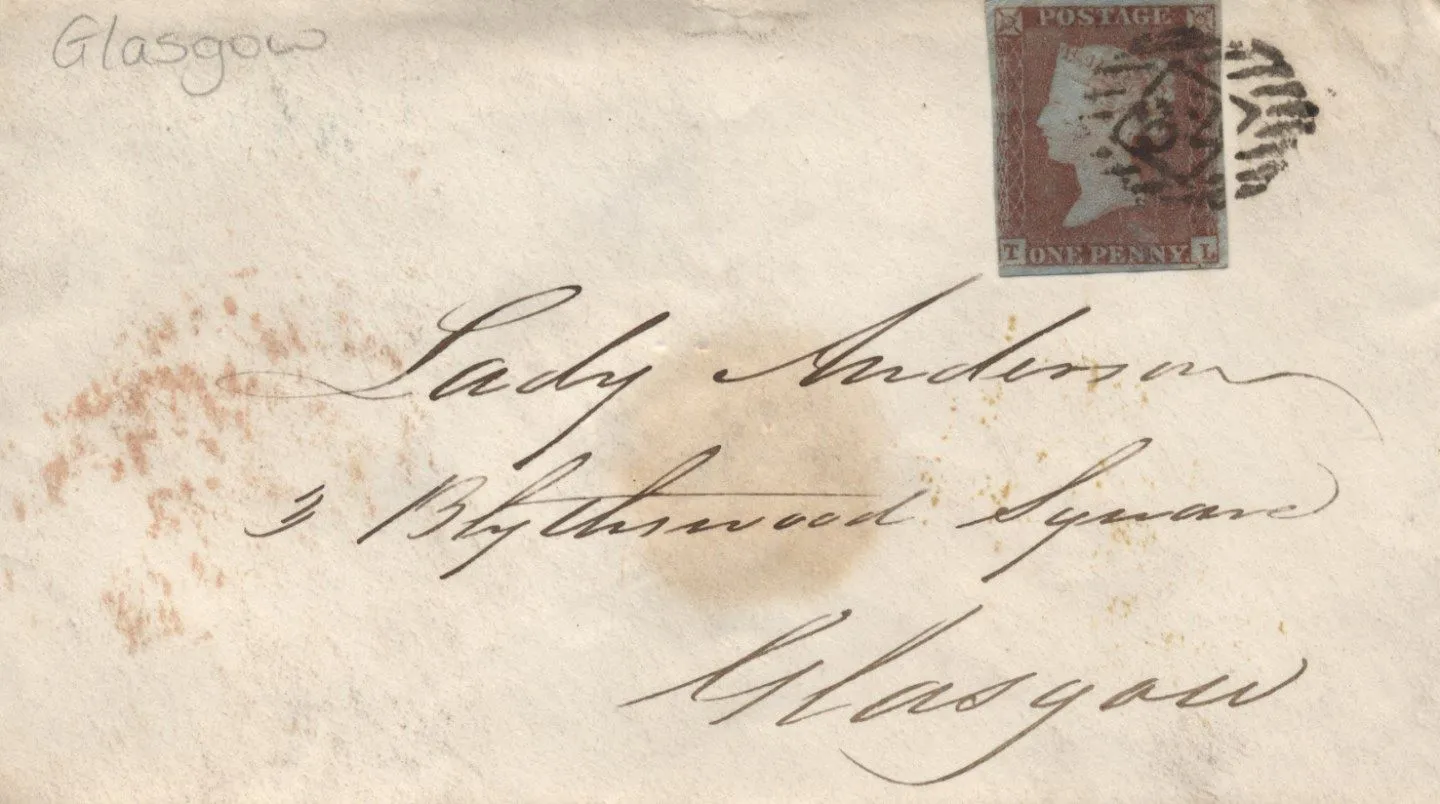 Glasgow
POSTAGE
T ONE PENNY L
Lady Anderson
3 Blythswood Square
Glasgow